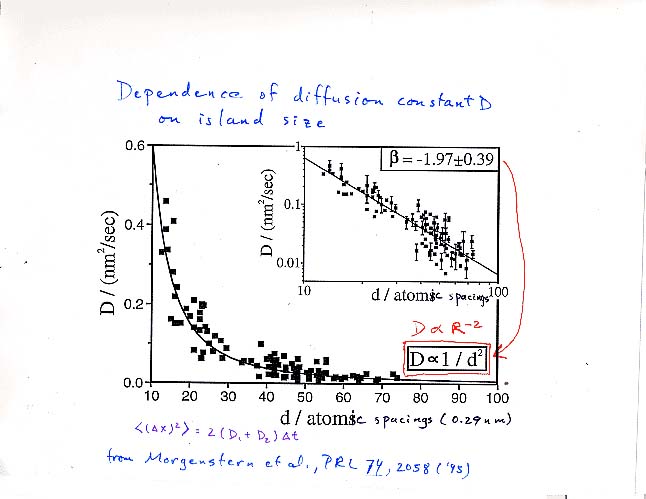 Dependence of diffusion constant D
on island size
0.6
0.4
0.2
0.0
D / (nm²/sec)
10 20 30 40 50 60 70 80 90 100
d / atomic spacings (0.29nm)
1
0.1
0.01
D / (nm²/sec)
10 100
d / atomic spacings
β = -1.97±0.39
D ∝ R⁻²
D ∝ 1 / d²
<(Δx)²> = 2(D₁ + D₂)Δt
from Morgenstern et al., PRL 74, 2058 ('95)